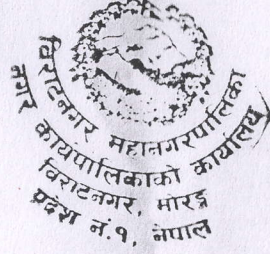 विराटनगर महानगरपालिका
नगर कार्यपालिकाको कार्यालय
विराटनगर, मोरङ
प्रदेश नं.१, नेपाल